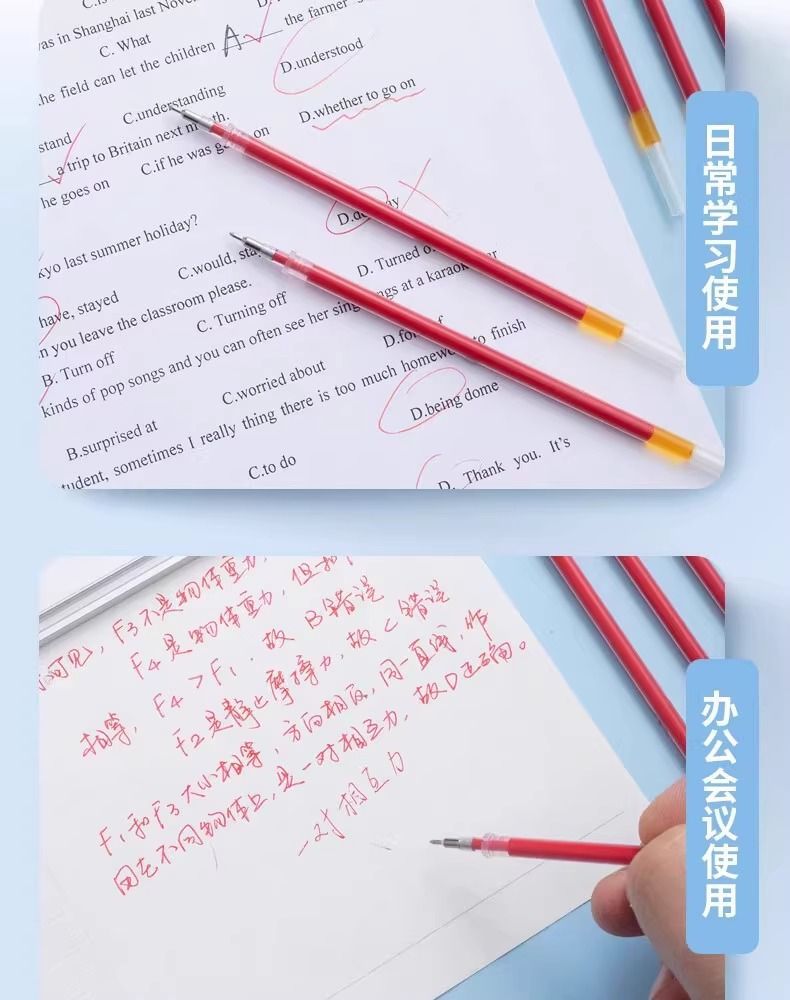 C.is
was in Shanghai last Nove
C. What
the field can let the children A the farmer
D.understood
C.understanding
D.whether to go on
stand
a trip to Britain next th.
C.if he was on
he goes on
kyo last summer holiday?
C.would, sta
D. Turned o
have, stayed
n you leave the classroom please.
C. Turning off
B. Turn off
kinds of pop songs and you can often see her sing ngs at a karaok er
D.fo of
C.worried about
B.surprised at
tudent, sometimes I really thing there is too much homewo to finish
D.being dome
C.to do
D. Thank you. It's
日常学习使用
可见, F3不是物体重力,
F4是物体重力, 但和
相等, F4 > F1. 故 B错误
F2是静止摩擦力, 故C错误
F1和F3大小相等, 方向相反, 同一直线, 作
用在不同物体上, 是一对相互力, 故D正确。
一对相互力
办公会议使用